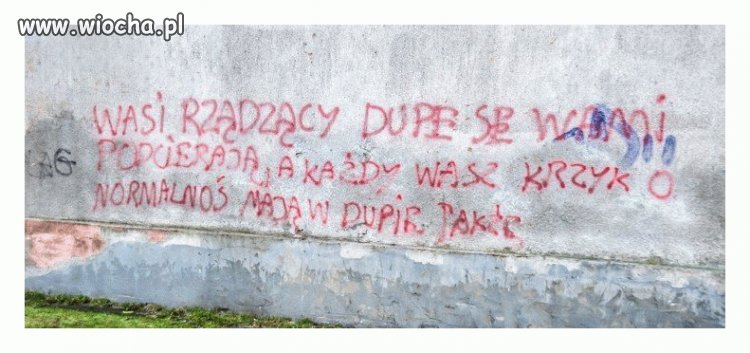 www.wiocha.pl
WASI RZĄDZĄCY DUPE SE WAMI
PODCIERAJĄ, A KAŻDY WASZ KRZYK O
NORMALNOŚ MAJĄ W DUPIE